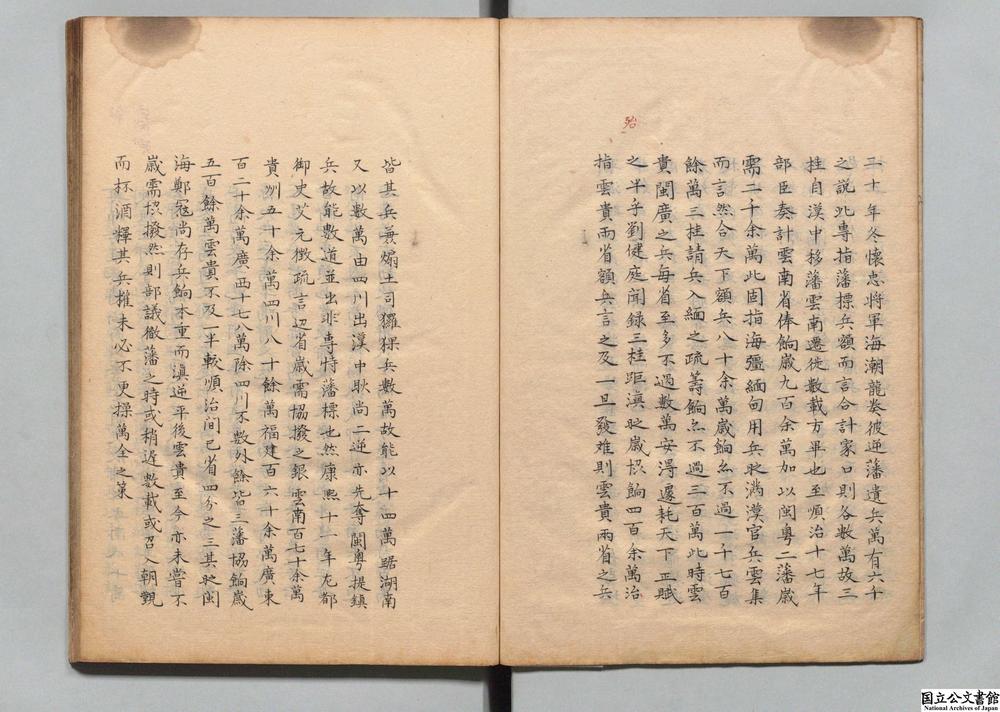 二十年冬懷忠將軍海潮龍奏彼逆藩遺兵萬有六千
之説此專指藩標兵額而言合計家口則各數萬故三
挂自漢中移藩雲南遷徙數載方畢也至順治十七年
部臣奏計雲南省俸餉歲九百余萬加以閩粵二藩歲
需二千余萬此固指海疆緬甸用兵时滿漢官兵雲集
而言然合天下額兵八十余萬歲餉亦不過一千七百
餘萬三挂請兵入緬之疏籌餉亦不過三百萬此時雲
貴閩廣之兵每省至多不過數萬安得遽耗天下正賦
之半乎劉健庭聞録三桂距滇时歲协餉四百余萬治
指雲貴兩省額兵言之及一旦發难則雲貴兩省之兵
治
皆其兵兼煽土司猓猓兵數萬故能以十四萬踞湖南
又以數萬由四川出漢中耿尚二逆亦先奪閩粵提鎮
兵故能數道並出非專恃藩標也然康熙十一年左都
御史艾元徵疏言边省歲需協撥之銀雲南百七十余萬
貴州五十余萬四川八十餘萬福建百六十余萬廣東
百二十余萬廣西十七八萬除四川不數外餘皆三藩協餉歲
五百餘萬雲貴不及一半較順治间已省四分之三其时閩
海鄭寇尚存兵餉本重而滇逆平後雲貴至今亦未嘗不
歲需协撥然則部議徹藩之時或稍遲數載或召入朝覲
而杯酒釋其兵權未必不更操萬全之策
国立公文書館
National Archives of Japan